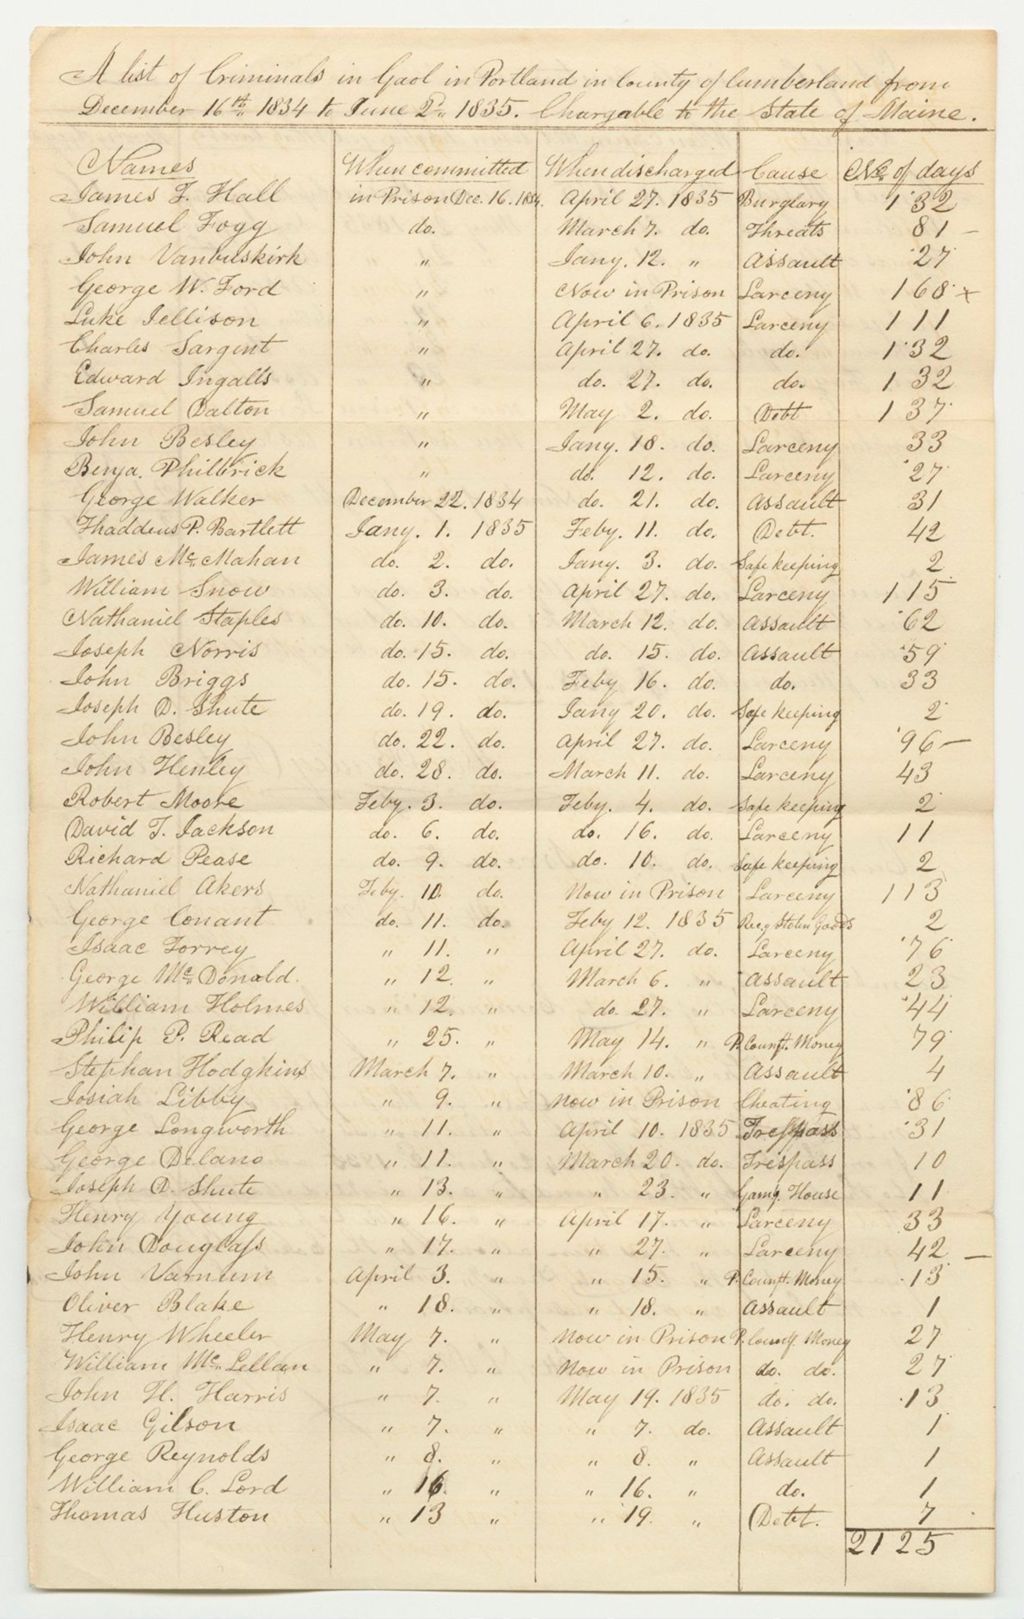 A list of Criminals in Gaol in Portland in County of Cumberland from
December 16th 1834 to June 2d 1835. Chargable to the State of Maine.
Names When committed When discharged Cause No. of days
James F. Hall in Prison Dec. 16. 1834 April 27. 1835 Burglary 132
Samuel Fogg do. March 7. do. Threats 81 –
John Vanbuskirk " Jany. 12. " Assault 27
George W. Ford " Now in Prison Larceny 168 x
Luke Jellison " April 6. 1835 Larceny 111
Charles Sargent " April 27. do. do. 132
Edward Ingalls " do. 27. do. do. 132
Samuel Dalton " May 2. do. Debt 137
John Besley " Jany. 18. do. Larceny 33
Benja. Philbrick " do. 12. do. Larceny 27
George Walker December 22. 1834 do. 21. do. Assault 31
Thaddeus P. Bartlett Jany. 1. 1835 Feby. 11. do. Debt. 42
James Mc. Mahan do. 2. do. Jany. 3. do. Safe keeping 2
William Snow do. 3. do. April 27. do. Larceny 115
Nathaniel Staples do. 10. do. March 12. do. Assault 62
Joseph Norris do. 15. do. do. 15. do. Assault 59
John Briggs do. 15. do. Feby 16. do. do. 33
Joseph D. Shute do. 19. do. Jany 20. do. Safe keeping 2
John Besley do. 22. do. April 27. do. Larceny 96 –
John Henley do. 28. do. March 11. do. Larceny 43
Robert Moore Feby. 3. do. Feby. 4. do. Safe keeping 2
David T. Jackson do. 6. do. do. 16. do. Larceny 11
Richard Pease do. 9. do. do. 10. do. Safe keeping 2
Nathaniel Akers Feby. 10 do. Now in Prison Larceny 113
George Conant do. 11. do. Feby 12. 1835 Rec.g Stolen Goods 2
Isaac Torrey " 11. " April 27. do. Larceny 76
George Mc. Donald. " 12. " March 6. " Assault 23
William Holmes " 12. " do. 27. " Larceny 44
Philip P. Read " 25. " May 14. " P. Countt. Money 79
Stephan Hodgkins March 7. " March 10. " Assault 4
Josiah Libby " 9. " Now in Prison Cheating 86
George Longworth " 11. " April 10. 1835 Trespass 31
George Delano " 11. " March 20. do. Trespass 10
Joseph D. Shute " 13. " " 23. " Gamg. House 11
Henry Young " 16. " April 17. " Larceny 33
John Douglass " 17. " " 27. " Larceny 42 –
John Varnum April 3. " " 15. " P. Countt. Money 13
Oliver Blake " 18. " " 18. " Assault 1
Henry Wheeler May 7. " Now in Prison P. Countf. Money 27
William Mc. Lellan " 7. " Now in Prison do. do. 27
John H. Harris " 7. " May 19. 1835 do. do. 13
Isaac Gilson " 7. " " 7. do. Assault 1
George Reynolds " 8. " " 8. " Assault 1
William C. Lord " 16 " " 16. " do. 1
Thomas Huston " 13 " " 19. " Debt. 7
2125